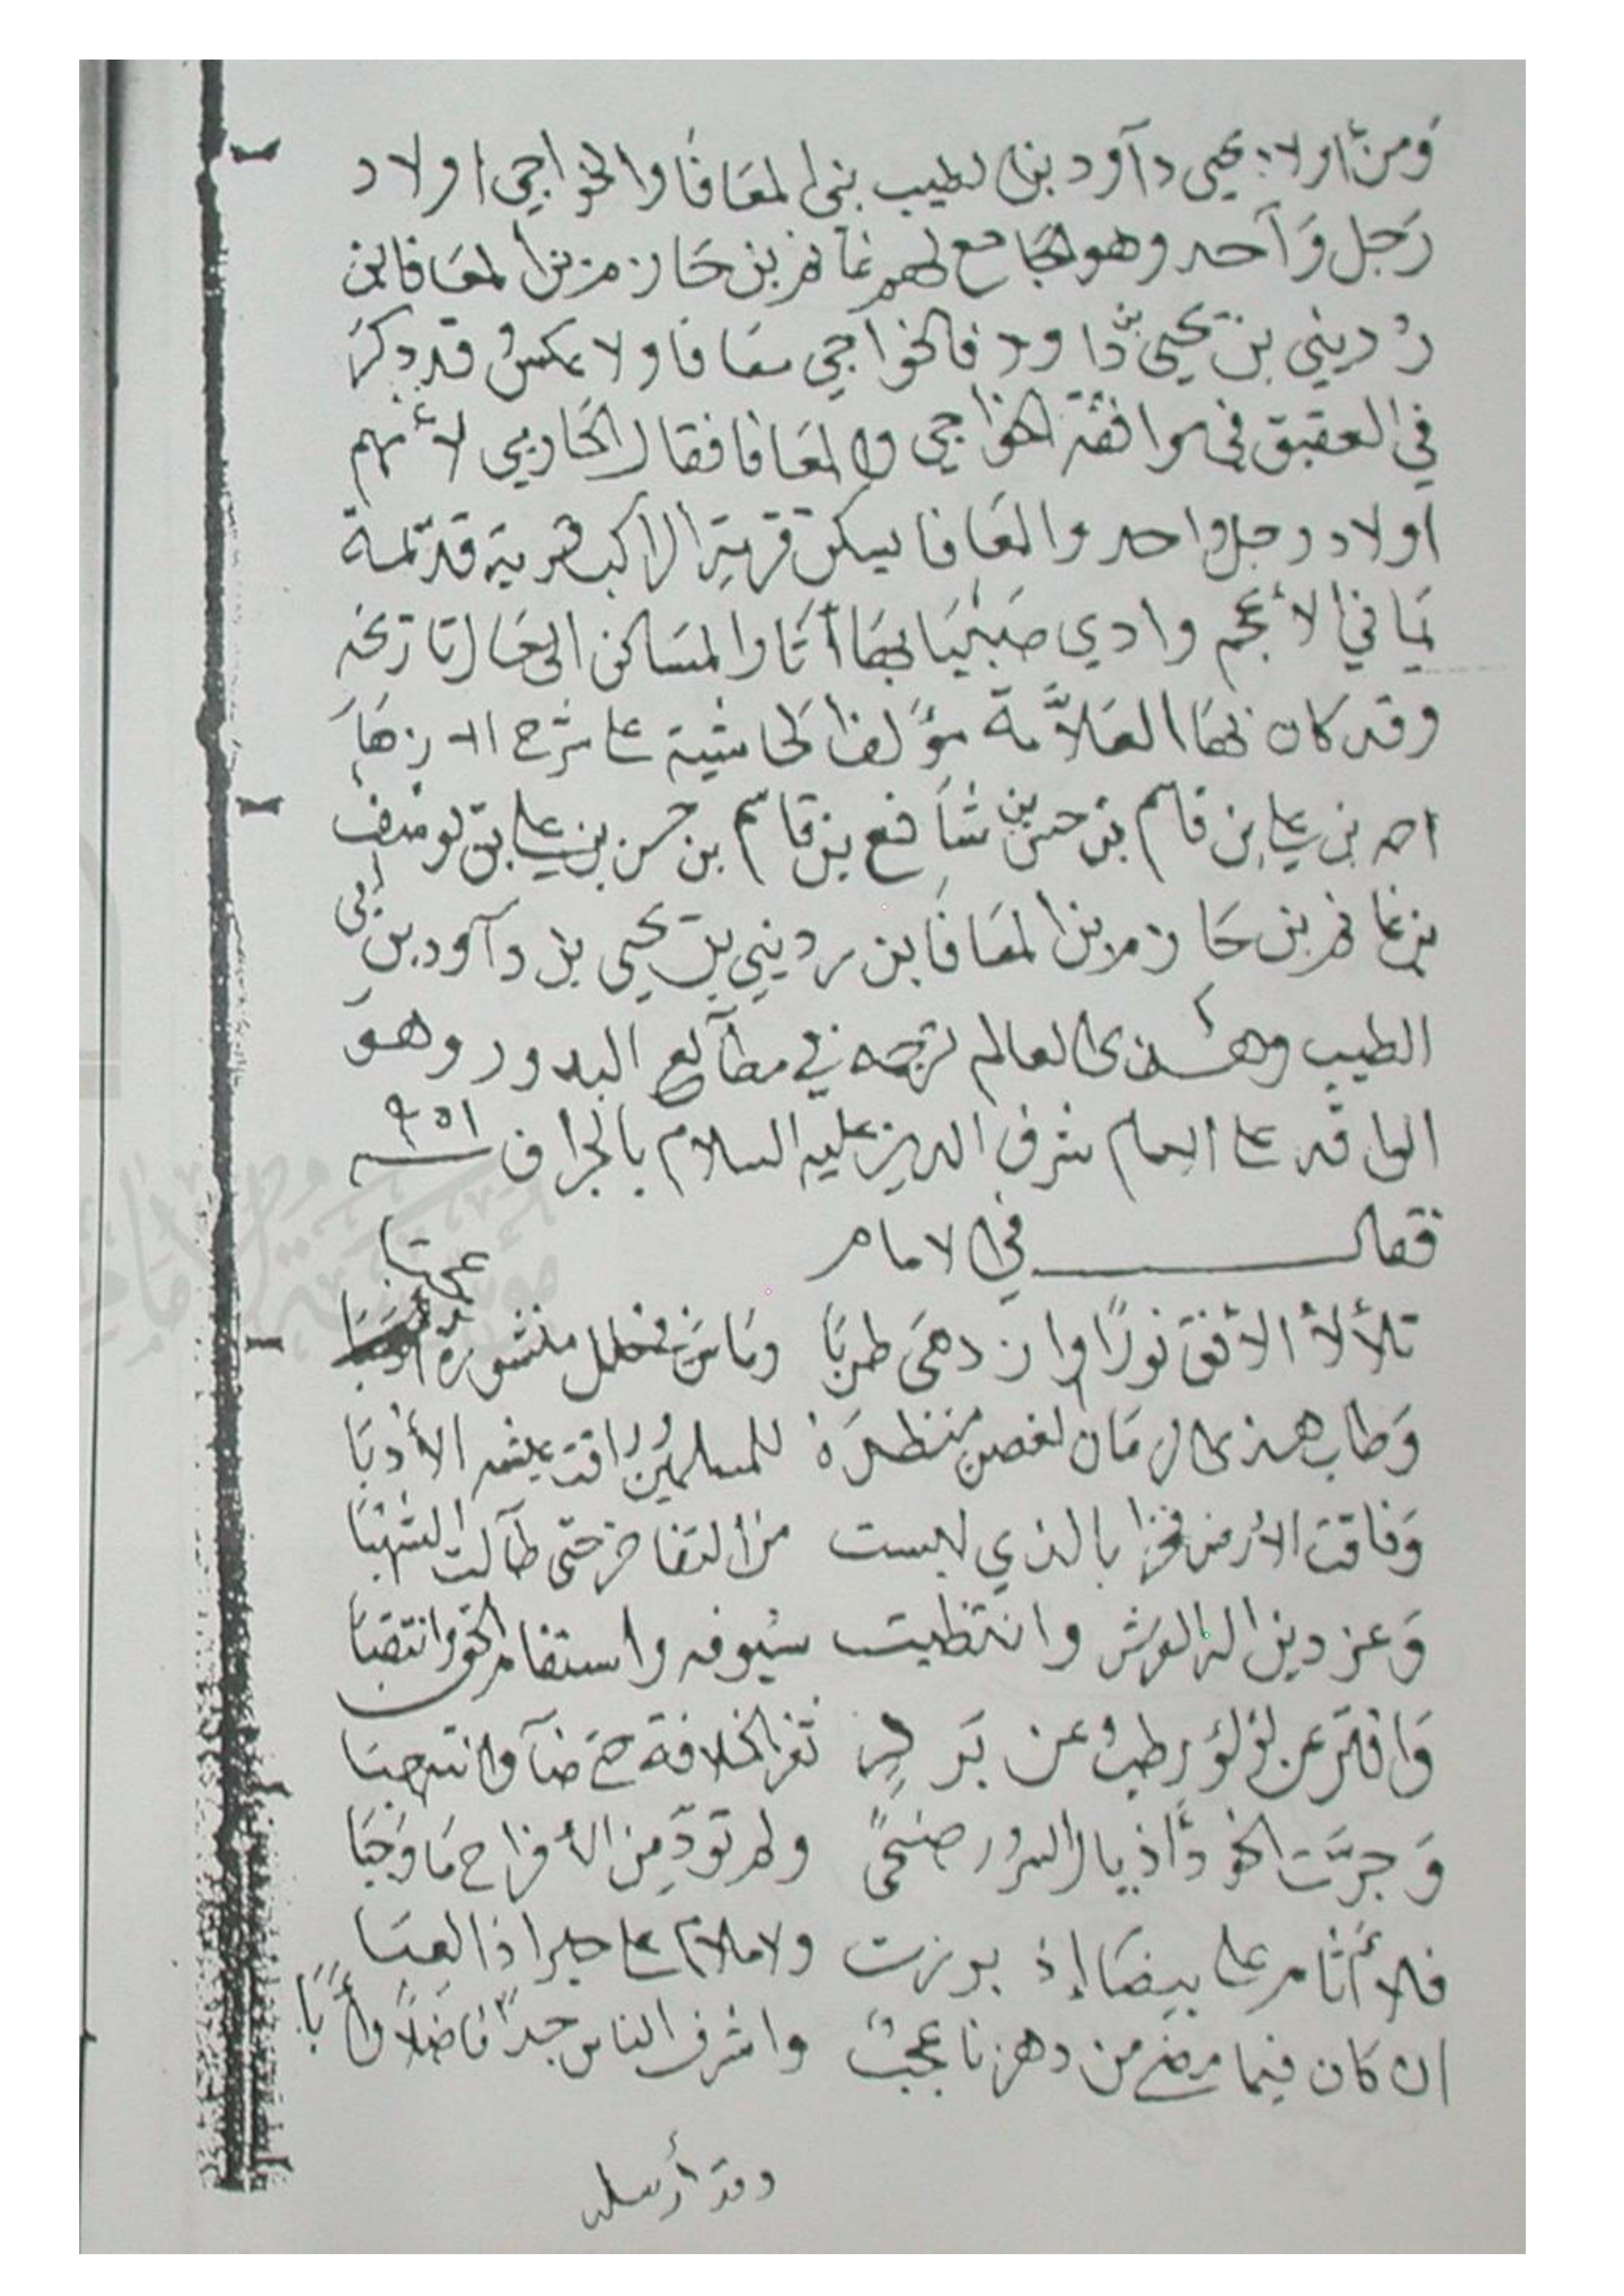 وَمن أولاد يحيى دآود بن الطيب بني المعَافَا والخواجي أولاد
رَجل وَآحد وهو الجَامع لهم غَانم بن حَازم بن المعَافا بن
رُديني بن يحيى بن دَاود فالخواجي معَافَا ولا عكسُ قد ذكرَ
في العقيق في موافقة الخواجي والمعَافا فقال الحَازمي لأنهم
أولاد رجل واحد والمعَافا يسكن قرية الراكب قرية قديمة
يماني الأعجم وادي صَبْيَيا بهَا أثَار المسَاكن الى حَال تاريخه
وقد كان بهَا العَلاَّمة مؤَلف الحاشية على شرح الازهَارِ
احمد بن علي بن قاسم بن حسن بن شَافع بن قاسم بن حسن بن علي بن يوسف
بن غانم بن حَازم بن المعَافَا بن رديني بن يحيى بن دآود بن أبي
الطيب وهـذى العالم ترجمه في مطآلع البدور وهو
الوافد على الامام شرف الدين عليه السلام بالجراف ٩٥١ سـنة
فقال في الامام
تلألأ الأفق نورًا وازدهَى طربَا ومَاسَ في حلل منشورة عجبا
وَطاب هـذى الزمَان لغصن منظرَة للمسلمين وراقت عيشه الأدبَا
وَفاقت الأرض فخرا بالذي لبست من التفاخر حتى طآلت الشهُبَا
وَعز دين اله العرش وانتظيت سيُوفه واستقام الحق وانتصبَا
وَافترَ عن لؤلؤ رطبٍ عن بَردٍ ثغر الخلافة حتى ضآ والتهبَا
وَجرَّت الخودُ أذيال السرُور ضُحىً ولم تؤدِّ مِن الأفراح مَا وَجبَا
فلا أثَام على بيضَا إذ برزت ولا ملام على
ان كان فيما مضى من دهرنا عجبٌ واشرف الناس جدًا فاضلاً وأبَا
وقد أرسله